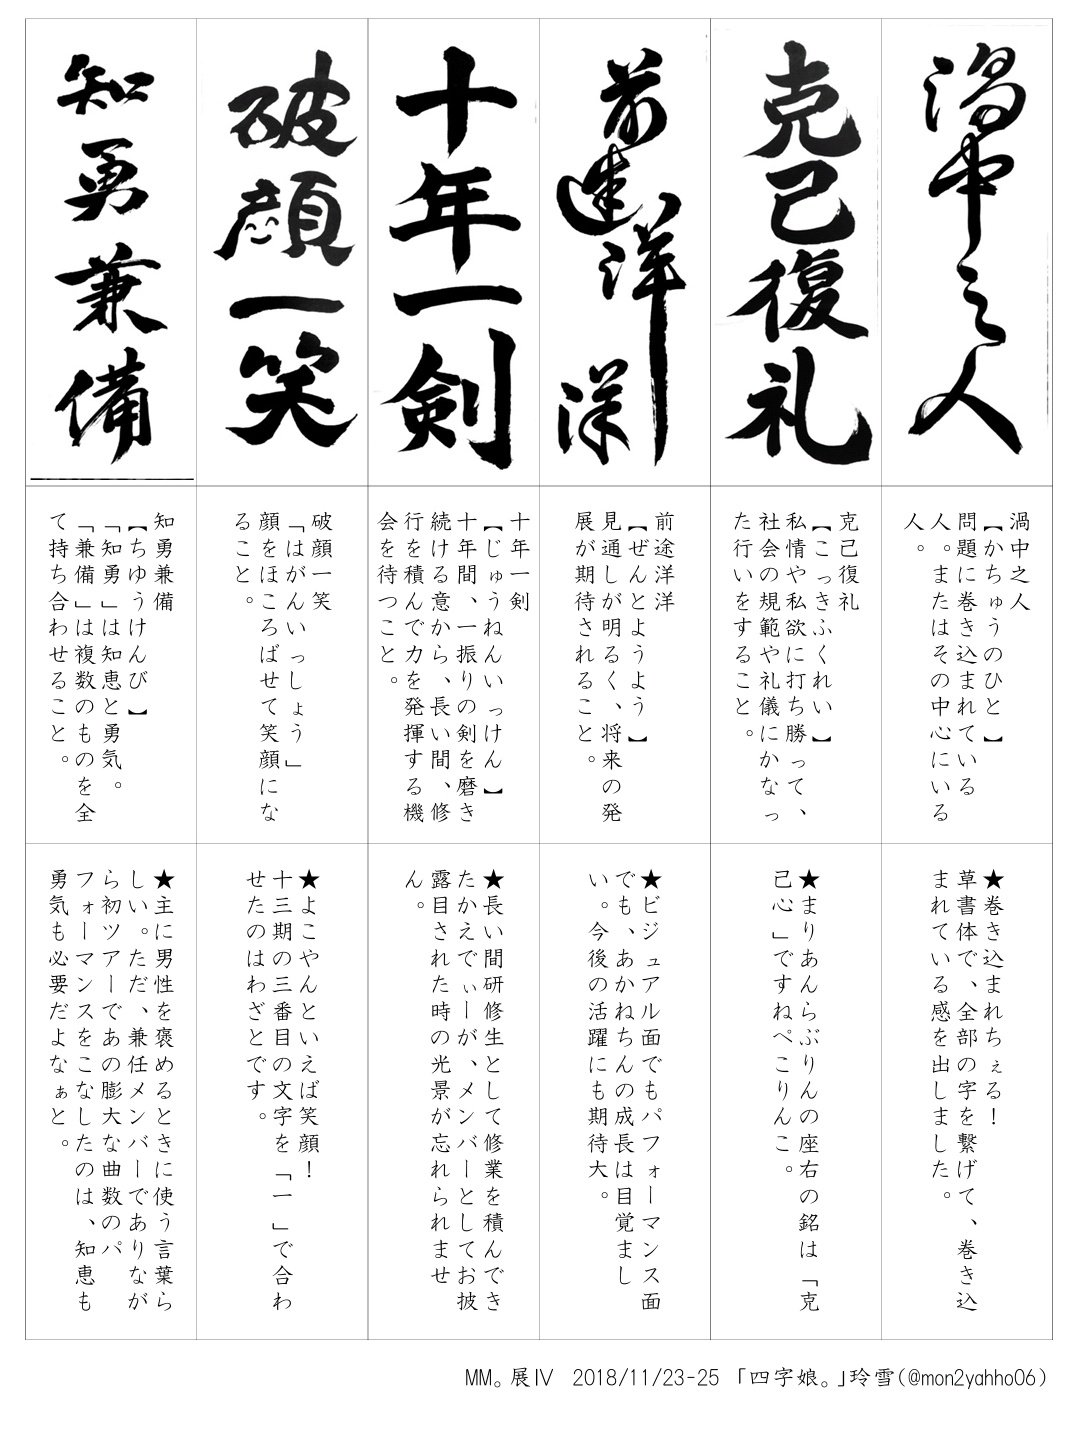 渦中之人
克己復礼
前途洋洋
十年一剣
破顔一笑
知勇兼備
渦中之人
【かちゅうのひと】
問題に巻き込まれている
人。またはその中心にいる
人。
克己復礼
【こっきふくれい】
私情や私欲に打ち勝って、
社会の規範や礼儀にかなっ
た行いをすること。
前途洋洋
【ぜんとようよう】
見通しが明るく、将来の発
展が期待されること。
十年一剣
【じゅうねんいっけん】
十年間、一振りの剣を磨き
続ける意から、長い間、修
行を積んで力を発揮する機
会を待つこと。
破顔一笑
「はがんいっしょう」
顔をほころばせて笑顔にな
ること。
知勇兼備
【ちゆうけんび】
「知勇」は知恵と勇気。
「兼備」は複数のものを全
て持ち合わせること。
★巻き込まれちぇる！
草書体で、全部の字を繋げて、巻き込
まれている感を出しました。
★まりあんらぶりんの座右の銘は「克
己心」ですねぺこりんこ。
★ビジュアル面でもパフォーマンス面
でも、あかねちんの成長は目覚まし
い。今後の活躍にも期待大。
★長い間研修生として修業を積んでき
たかえでぃーが、メンバーとしてお披
露目された時の光景が忘れられませ
ん。
★よこやんといえば笑顔！
十三期の三番目の文字を「一」で合わ
せたのはわざとです。
★主に男性を褒めるときに使う言葉ら
しい。ただ、兼任メンバーでありなが
ら初ツアーであの膨大な曲数のパ
フォーマンスをこなしたのは、知恵も
勇気も必要だよなぁと。
MM。展Ⅳ 2018/11/23-25 「四字娘。」玲雪(@mon2yahho06)